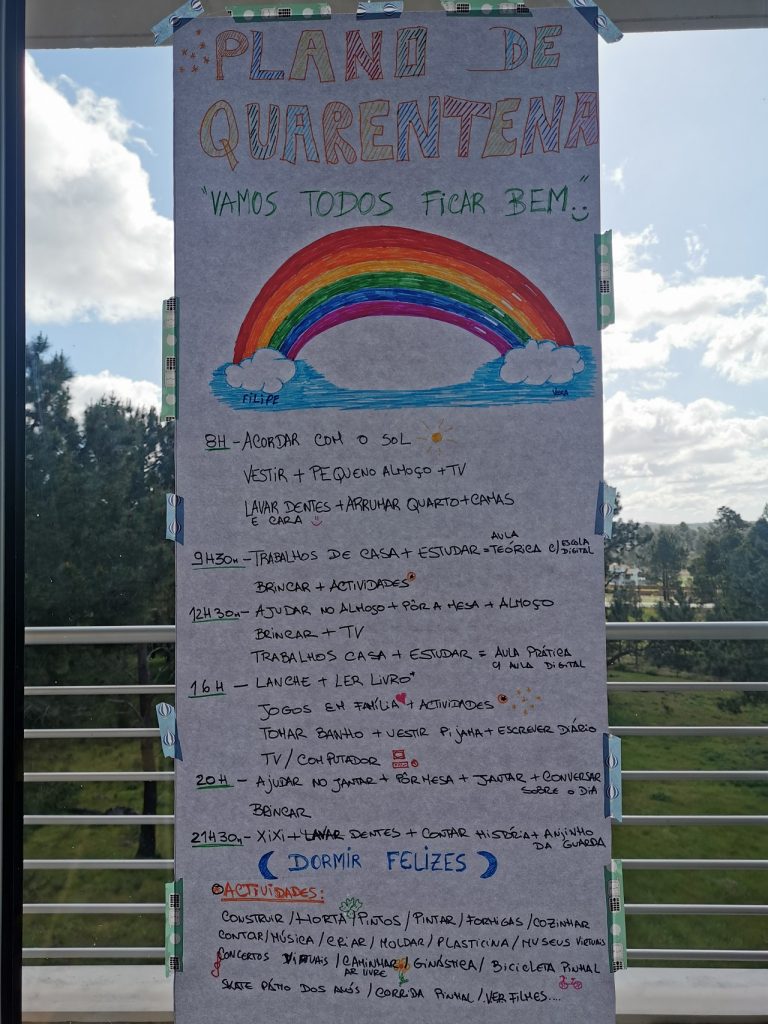 PLANO DE
QUARENTENA
"VAMOS TODOS FICAR BEM."
FILIPE
8H - ACORDAR COM O SOL
VESTIR + PEQUENO ALMOÇO + TV
LAVAR DENTES + ARRUMAR QUARTO + CAMAS
E CARA
9H30M - TRABALHOS DE CASA + ESTUDAR = AULA TEÓRICA C/ ESCOLA DIGITAL
BRINCAR + ACTIVIDADES
12H30M - AJUDAR NO ALMOÇO + PÔR A MESA + ALMOÇO
BRINCAR + TV
TRABALHOS CASA + ESTUDAR = AULA PRÁTICA
C/ AULA DIGITAL
16H - LANCHE + LER LIVRO*
JOGOS EM FAMÍLIA + ACTIVIDADES
TOMAR BANHO + VESTIR PIJAMA + ESCREVER DIÁRIO
TV / COMPUTADOR
20H - AJUDAR NO JANTAR + PÔR MESA + JANTAR + CONVERSAR
SOBRE O DIA
BRINCAR
21H30M - XIXI + LAVAR DENTES + CONTAR HISTÓRIA + ANJINHO
DA GUARDA
DORMIR FELIZES
ACTIVIDADES:
CONSTRUIR / HORTA / PINTOS / PINTAR / FORMIGAS / COZINHAR
CONTAR / MÚSICA / CRIAR / MOLDAR / PLASTICINA / MUSEUS VIRTUAIS
CONCERTOS VIRTUAIS / CAMINHAR AR LIVRE / GINÁSTICA / BICICLETA PINHAL
SKATE PÁTIO DOS AVÓS / CORRIDA PINHAL / VER FILMES....